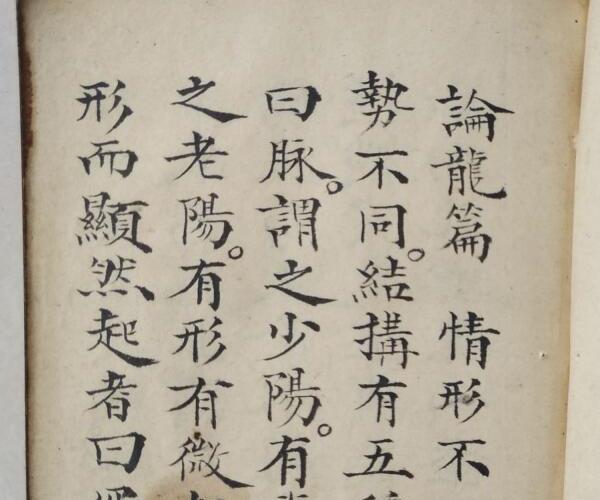 論龍篇　情形不
勢不同。結搆有五
曰脉。謂之少陽。有
之老陽。有形有微
形而顯然起者曰